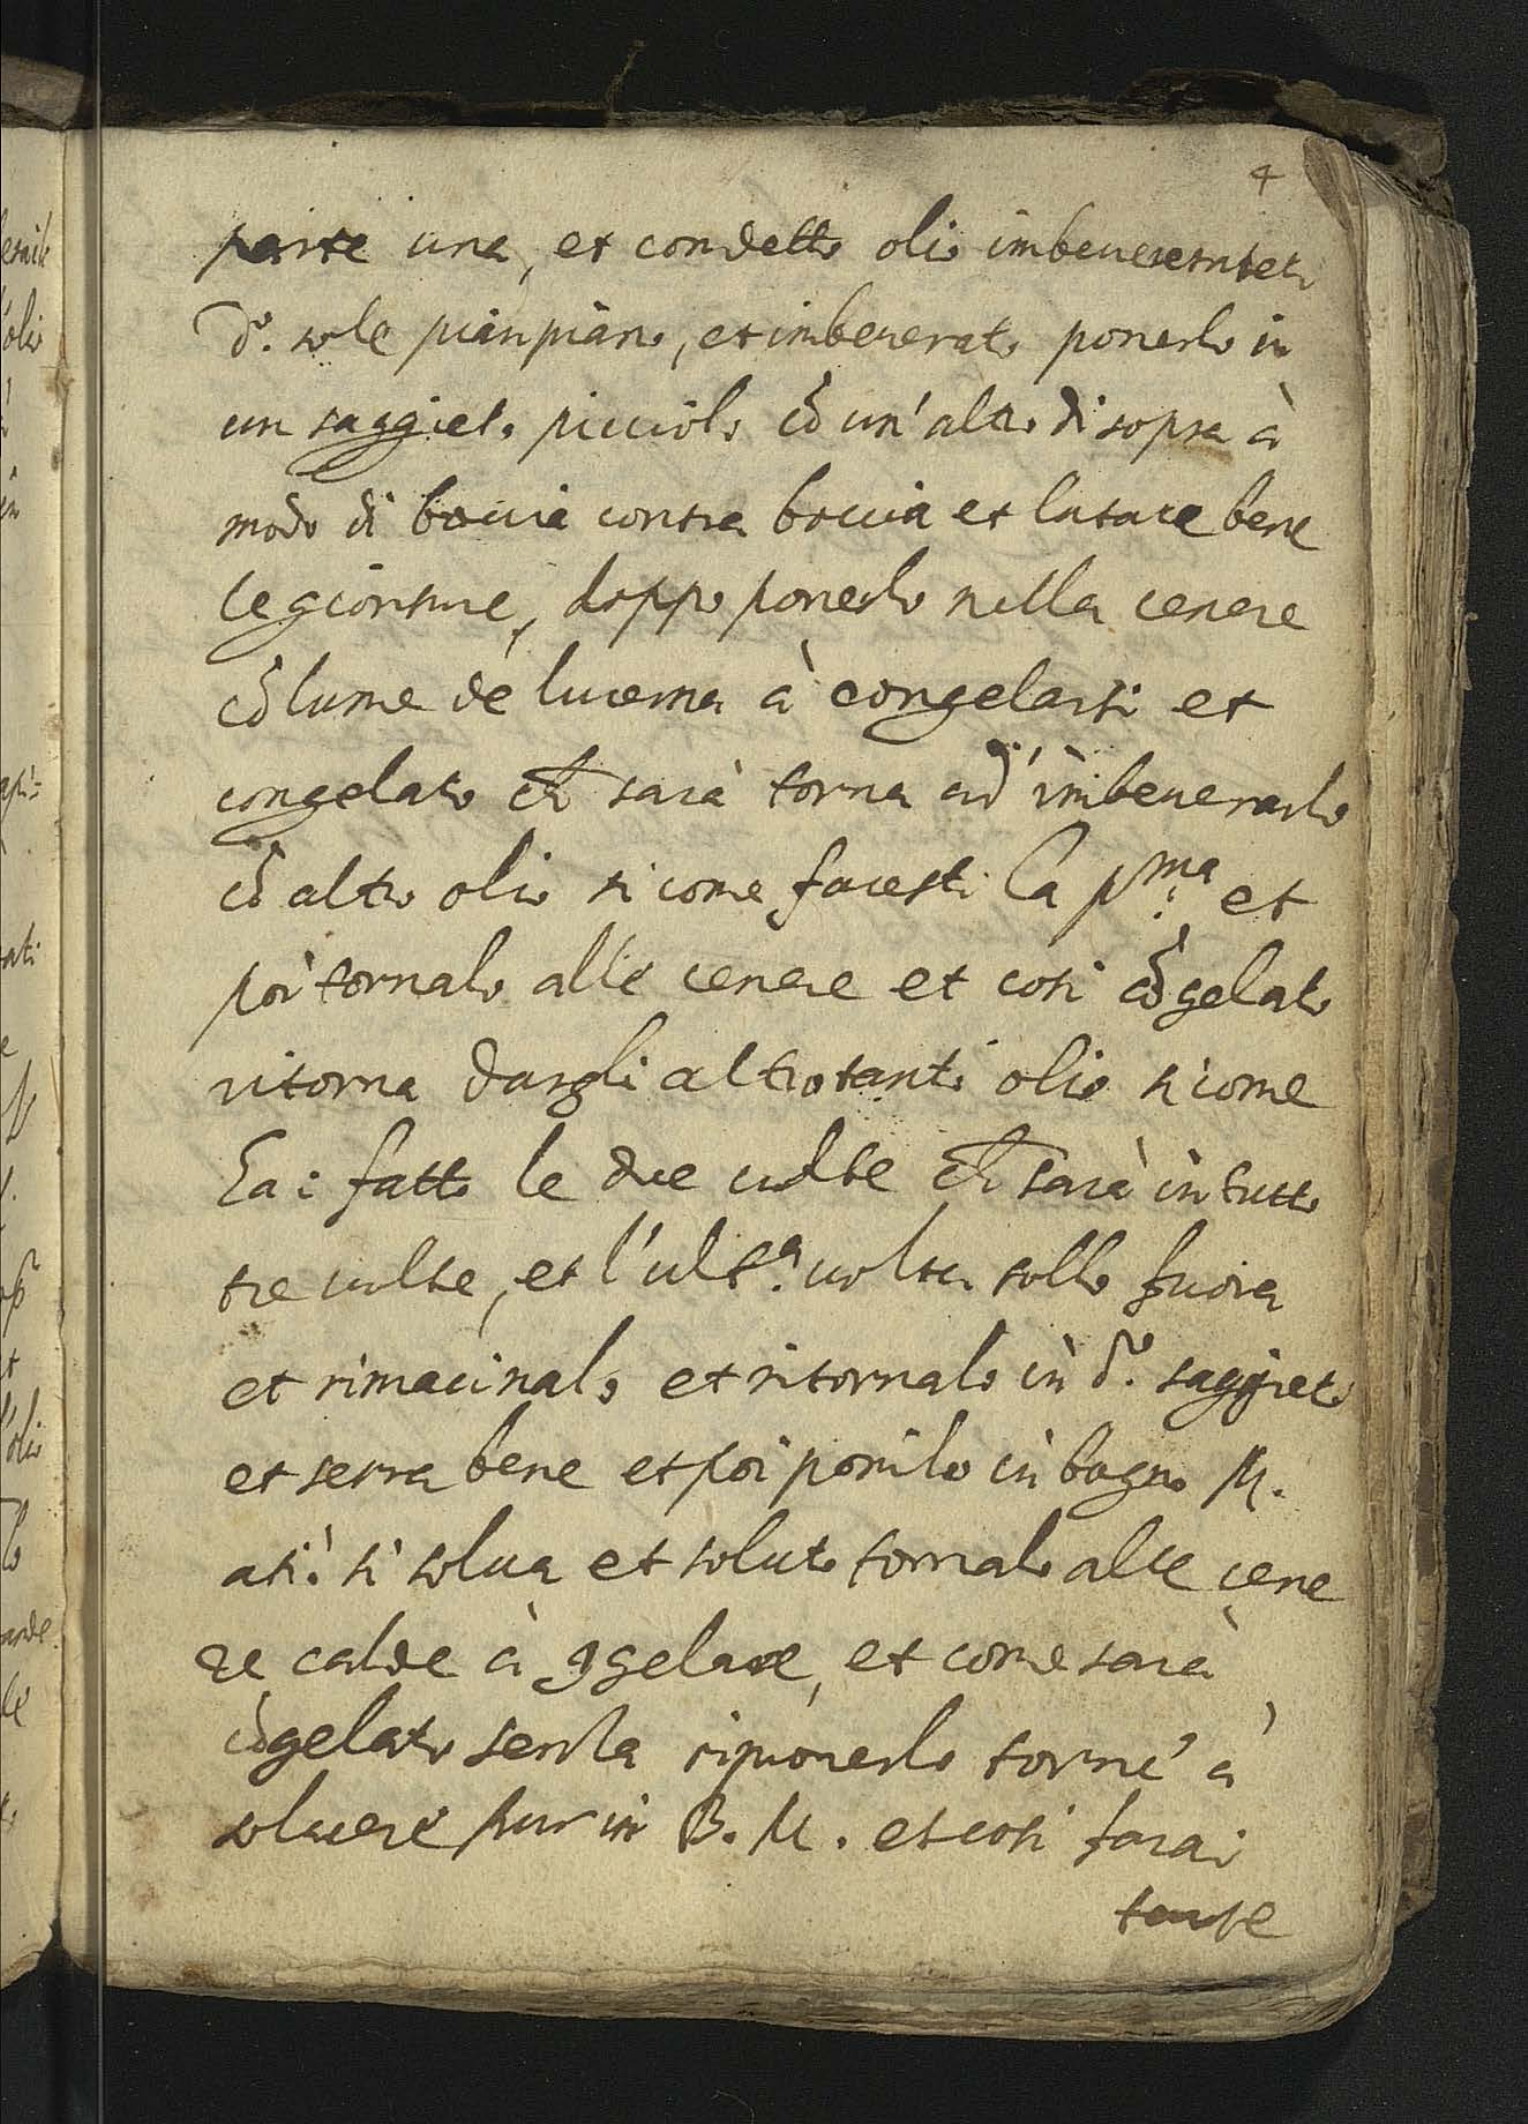 4
parte una, et condetto olio imbeverateti
d.º sole pian piano, et imbeverato ponerlo in
un saggieto picciolo cõ un'altro di sopra à
modo di boccia contra boccia et lutare bene
le gionture, doppo ponerlo nella cenere
cõ lume de lucerna à congelarsi et
congelato ch̃ sarà torna ad' imbeverarlo
cõ altro olio si come facesti la p.ma et
poi tornalo alle cenere et cosi cõgelato
ritorna dargli altrotanti olio si come
hai fatto le due volte ch̃ sarà in tutto
tre volte, et l'ult.a volta tollo fuora
et rimacinalo et ritornalo in d.º saggieto
et serra bene et poi ponilo in bagno M.
acciò si solva et soluto tornalo alle cene
re calde à ꝯgelare, et come sarà
cõgelato senza rimoverlo torne' à
solvere pur in B. M. et cosi farai
tante